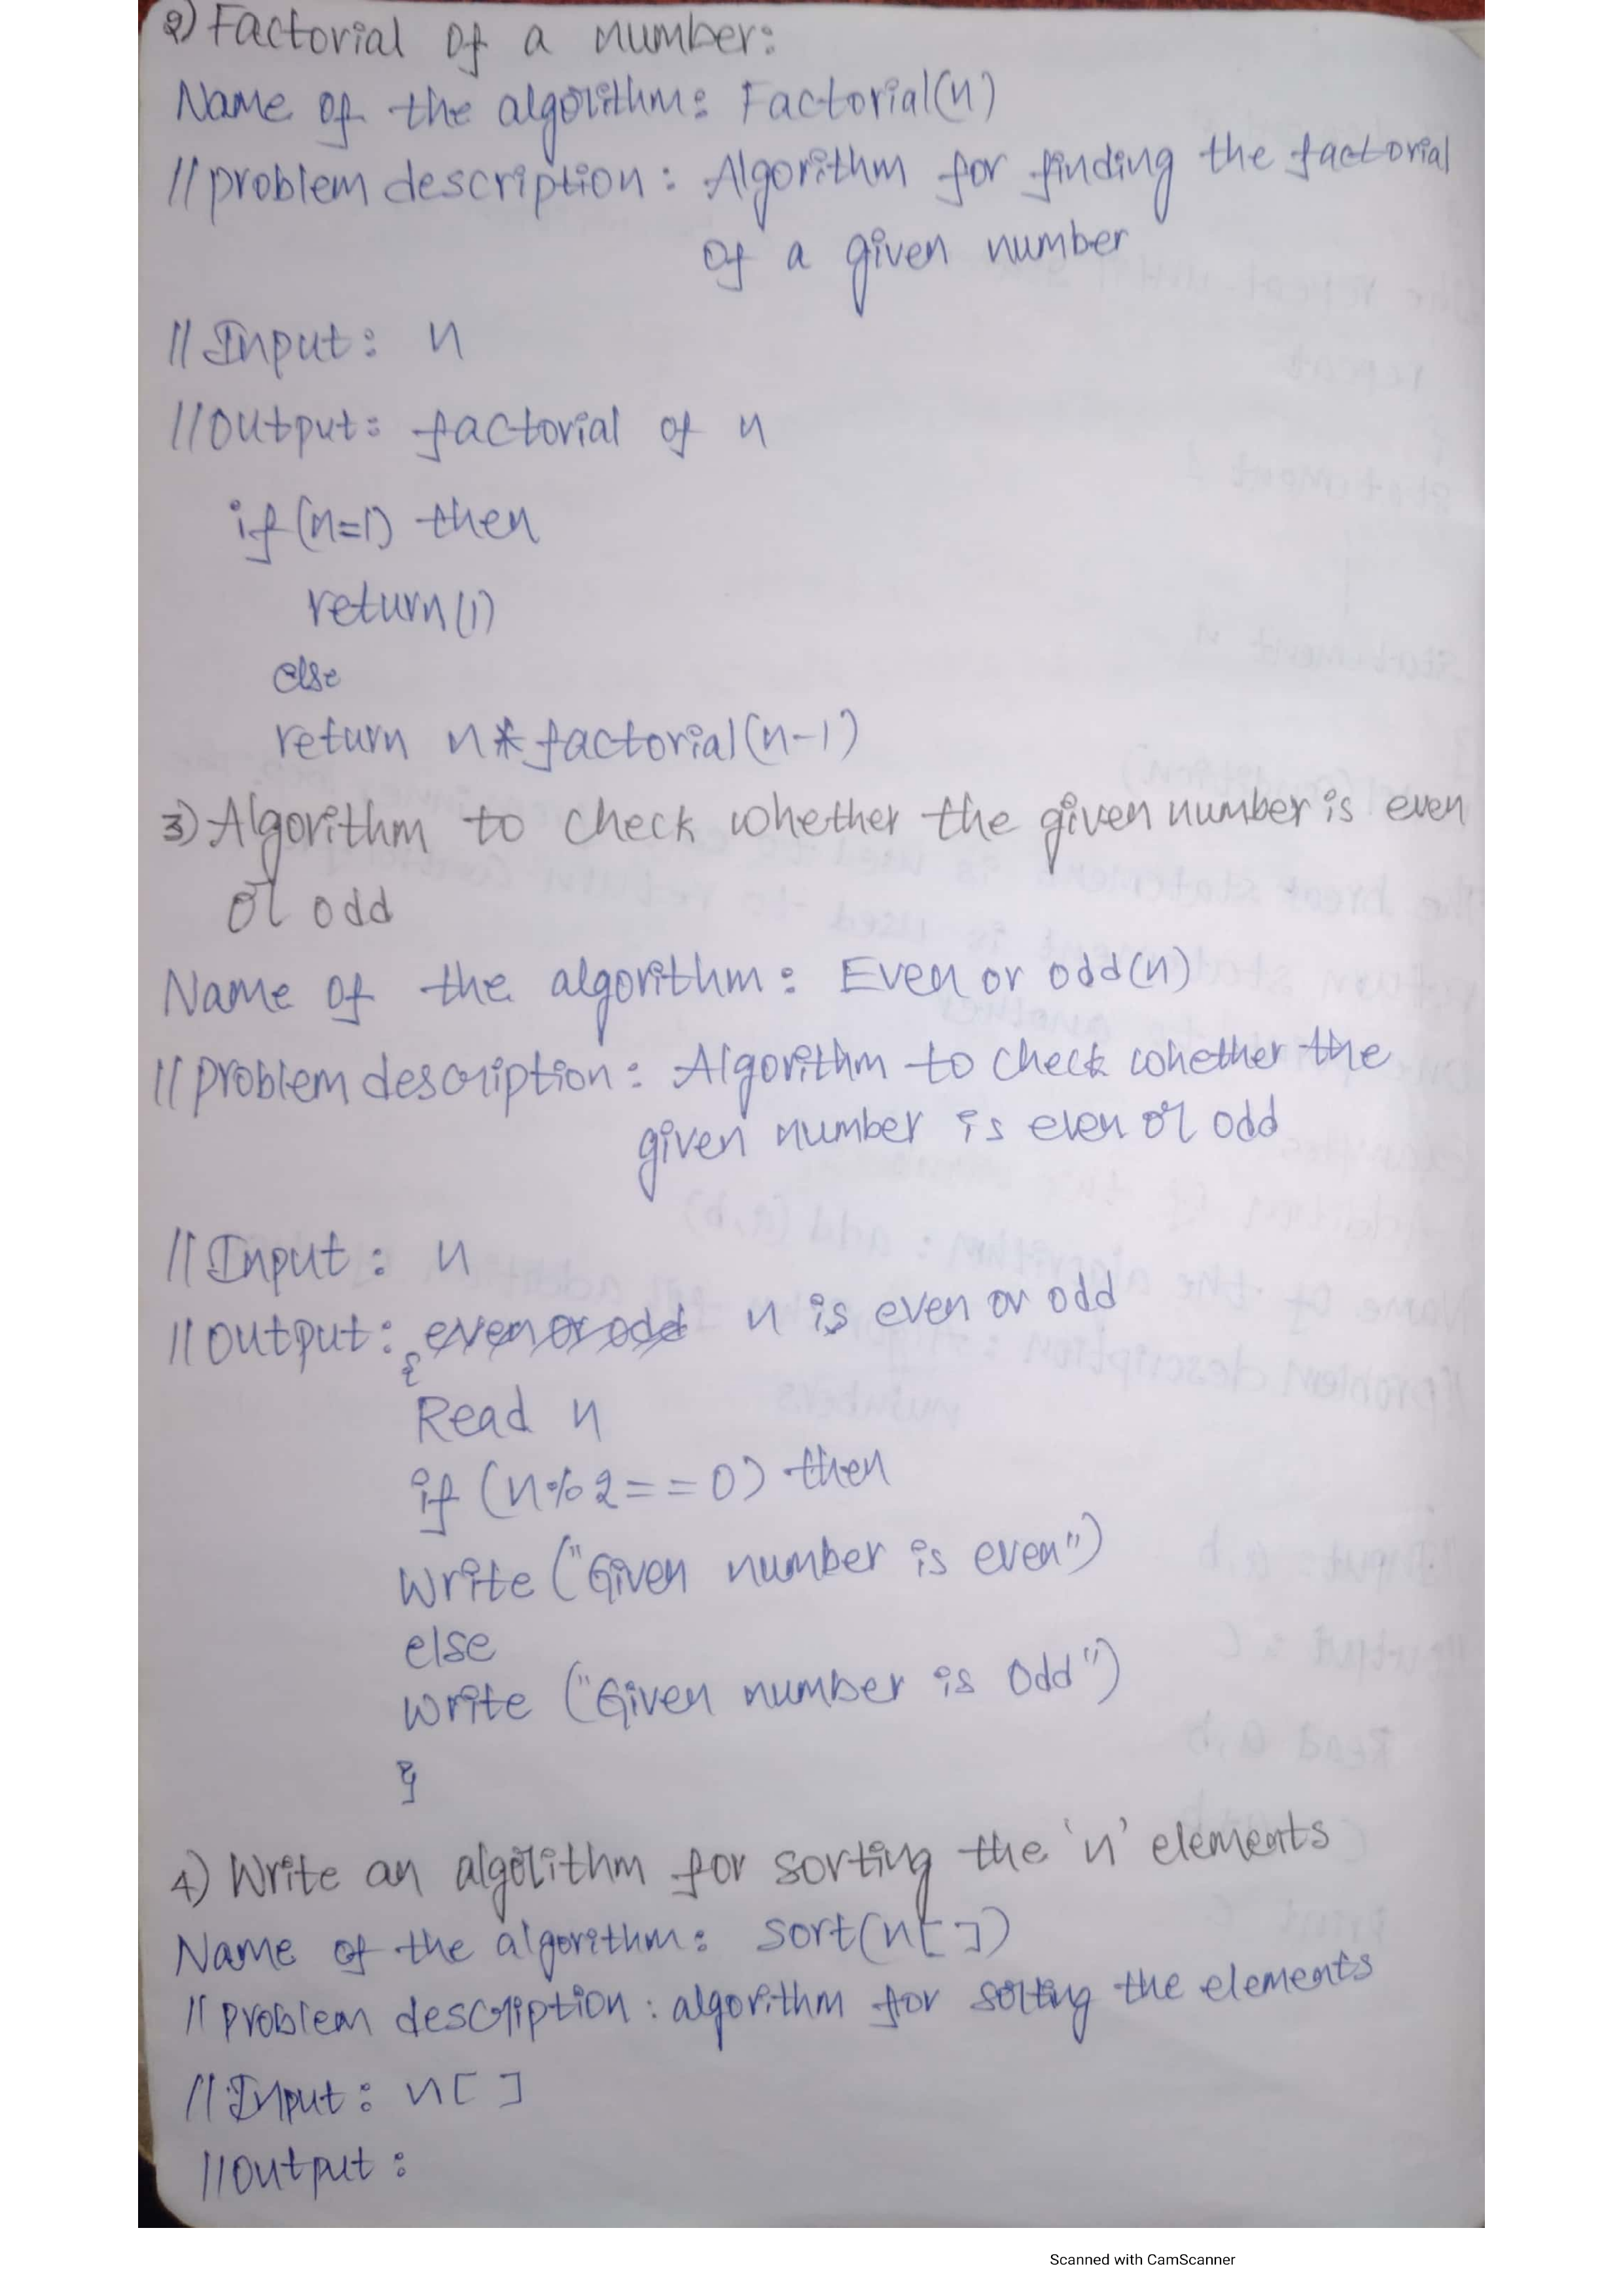 2) Factorial of a number:
Name of the algorithm: Factorial(n)
//problem description: Algorithm for finding the factorial
of a given number
// Input: n
//Output: factorial of n
if (n=1) then
return(1)
else
return n*factorial(n-1)
3) Algorithm to check whether the given number is even
or odd
Name of the algorithm: Even or odd(n)
//problem description: Algorithm to check whether the
given number is even or odd
// Input: n
// output: even or odd n is even or odd
{
Read n
if (n%2==0) then
Write ("Given number is even")
else
Write ("Given number is odd")
}
4) Write an algorithm for sorting the 'n' elements
Name of the algorithm: sort(n[ ])
// problem description: algorithm for sorting the elements
// Input: n[ ]
//output:
Scanned with CamScanner